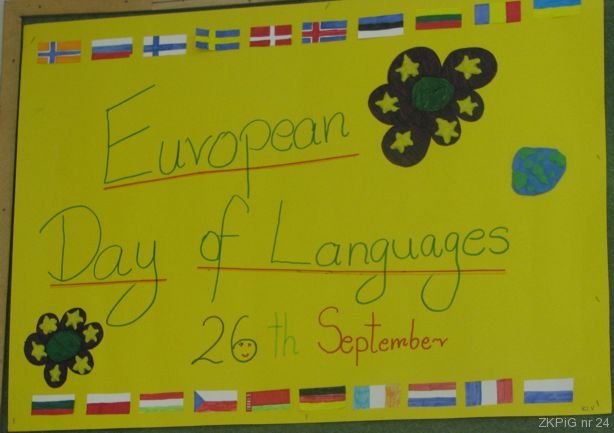 European
Day of Languages
26th September
ZKPiG nr 24